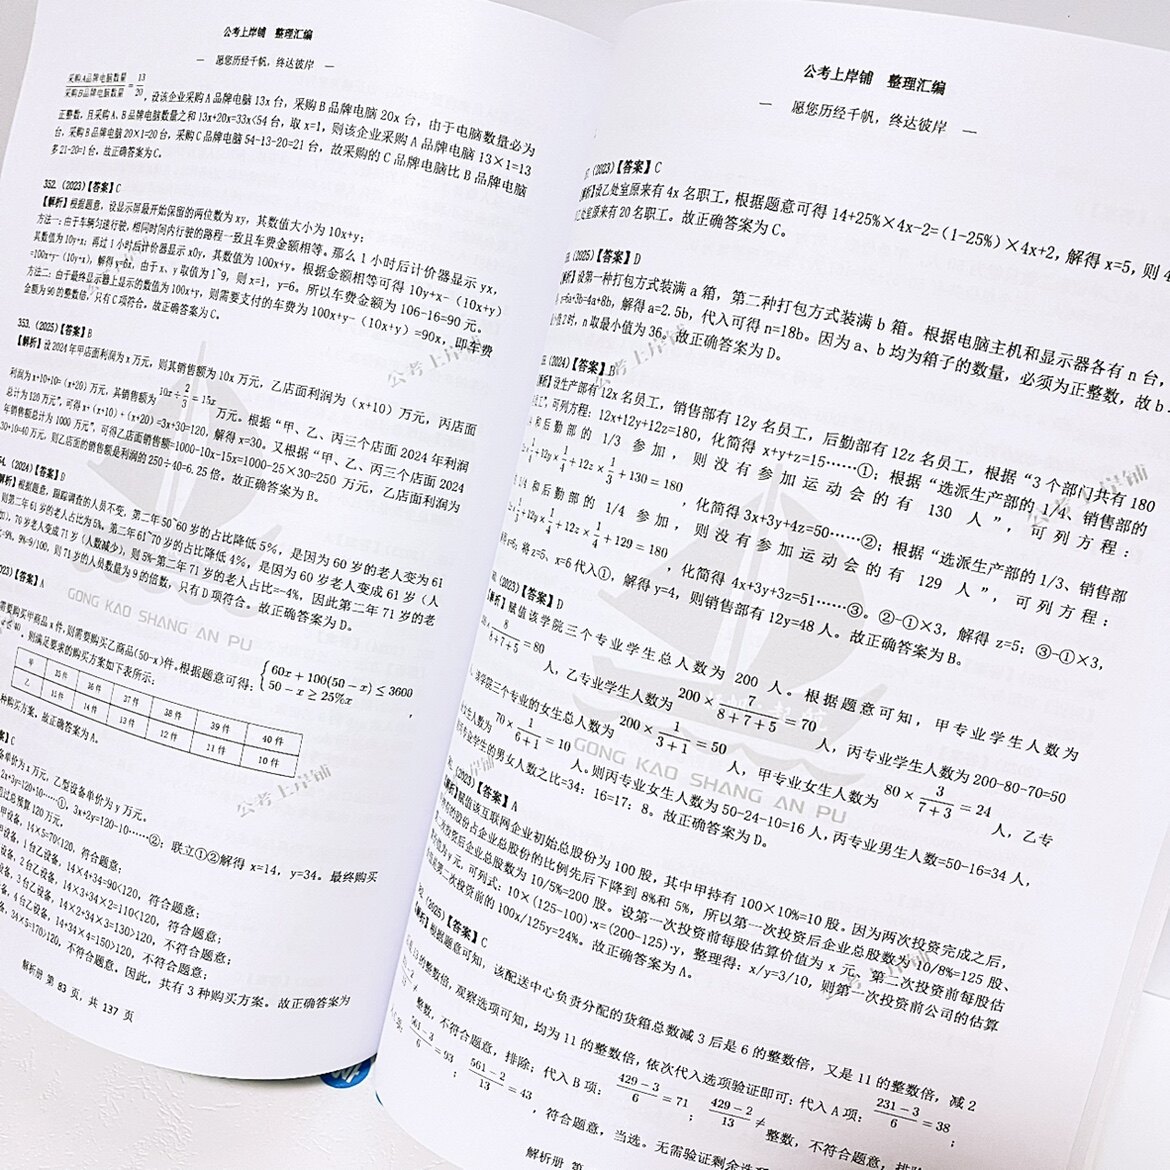 公考上岸铺 整理汇编
— 愿您历经千帆，终达彼岸 —
采购A品牌电脑数量/采购B品牌电脑数量=13/20，设该企业采购A品牌电脑13x台，采购B品牌电脑20x台，由于电脑数量必为
正整数，且采购A、B品牌电脑数量之和13x+20x=33x<54台，取x=1，则该企业采购A品牌电脑13×1=13
台，采购B品牌电脑20×1=20台，采购C品牌电脑54-13-20=21台，故采购的C品牌电脑比B品牌电脑
多21-20=1台。故正确答案为C。
352.（2023）【答案】C
【解析】根据题意，设显示屏最开始保留的两位数为xy，其数值大小为10x+y；
方法一：由于车辆匀速行驶，相同时间内行驶的路程一致且车费金额相等。那么1小时后计价器显示yx，
其数值为10y+x；再过1小时后计价器显示x0y，其数值为100x+y。根据金额相等可得10y+x-（10x+y）
=100x+y-（10y+x），解得y=6x，由于x、y取值为1~9，则x=1，y=6。所以车费金额为106-16=90元。
方法二：由于最终显示器上显示的数值为100x+y，则需要支付的车费为100x+y-（10x+y）=90x，即车费
金额为90的整数倍，只有C项符合。故正确答案为C。
353.（2025）【答案】B
【解析】设2024年甲店面利润为x万元，则其销售额为10x万元，乙店面利润为（x+10）万元，丙店面
利润为x+10+10=（x+20）万元，其销售额为10x÷2/3=15x万元。根据“甲、乙、丙三个店面2024年利润
总计为120万元”，可得x+（x+10）+（x+20）=3x+30=120，解得x=30。又根据“甲、乙、丙三个店面2024
年销售额总计为1000万元”，可得乙店面销售额=1000-10x-15x=1000-25×30=250万元，乙店面利润为
30+10=40万元，则乙店面的销售额是利润的250÷40=6.25倍。故正确答案为B。
（2024）【答案】D
【解析】根据题意，跟踪调查的人员不变，第二年50~60岁的占比降低5%，是因为60岁的老人变为61
则第二年61岁的老人占比为5%，第二年61~70岁的占比降低4%，是因为60岁老人变成61岁（人
），70岁老人变成71岁（人数减少），则5%-第二年71岁的老人占比=-4%，因此第二年71岁的老
=9%，9%=9/100，则71岁的人员数量为9的倍数，只有D项符合。故正确答案为D。
【答案】A
需要购买甲商品x件，则需要购买乙商品（50-x）件。根据题意可得：{60x+100(50-x)≤3600
50-x≥25%x，
，则满足要求的购买方案如下表所示：
甲 35件 36件 37件 38件 39件 40件
乙 15件 14件 13件 12件 11件 10件
种购买方案。故正确答案为A。
】C
备单价为x万元，乙型设备单价为y万元。
2x+3y=120+10……①，3x+2y=120-10……②；联立①②解得x=14，y=34。最终购买
过总预算120万元。
甲设备，14×5=70<120，符合题意；
设备，1台乙设备，14×4+34=90<120，符合题意；
设备，2台乙设备，14×3+34×2=110<120，符合题意；
设备，3台乙设备，14×2+34×3=130>120，不符合题意；
设备，4台乙设备，14+34×4=150>120，不符合题意；
设备，34×5=170>120，不符合题意。因此，共有3种购买方案。故正确答案为
解析册 第 83 页，共 137 页
公考上岸铺
GONG KAO SHANG AN PU
公考上岸铺
公考上岸铺 整理汇编
— 愿您历经千帆，终达彼岸 —
（2023）【答案】C
【解析】设乙处室原来有4x名职工，根据题意可得14+25%×4x-2=（1-25%）×4x+2，解得x=5，则
处室原来有20名职工。故正确答案为C。
（2025）【答案】D
【解析】设第一种打包方式装满a箱，第二种打包方式装满b箱。根据电脑主机和显示器各有n台，
=6a+3b=4a+8b，解得a=2.5b，代入可得n=18b。因为a、b均为箱子的数量，必须为正整数，故b
小值2时，n取最小值为36。故正确答案为D。
（2024）【答案】B
【解析】设生产部有12x名员工，销售部有12y名员工，后勤部有12z名员工，根据“3个部门共有180
工”，可列方程：12x+12y+12z=180，化简得x+y+z=15……①；根据“选派生产部的1/4、销售部的
和后勤部的1/3参加，则没有参加运动会的有130人”，可列方程：
×1/4+12y×1/4+12z×1/3+130=180，化简得3x+3y+4z=50……②；根据“选派生产部的1/3、销售部
1/4和后勤部的1/4参加，则没有参加运动会的有129人”，可列方程：
×1/3+12y×1/4+12z×1/4+129=180，化简得4x+3y+3z=51……③。②-①×3，解得z=5；③-①×3，
x=6，将z=5、x=6代入①，解得y=4，则销售部有12y=48人。故正确答案为B。
（2023）【答案】D
【解析】赋值该学院三个专业学生总人数为200人。根据题意可知，甲专业学生人数为
×8/(8+7+5)=80人，乙专业学生人数为200×7/(8+7+5)=70人，丙专业学生人数为200-80-70=50
，该学院三个专业的女生总人数为200×1/(3+1)=50人，甲专业女生人数为80×3/(7+3)=24人，乙专
女生人数为70×1/(6+1)=10人，则丙专业女生人数为50-24-10=16人，丙专业男生人数=50-16=34人，
丙专业学生的男女人数之比=34：16=17：8。故正确答案为D。
（2023）【答案】A
【解析】赋值该互联网企业初始总股份为100股，其中甲持有100×10%=10股。因为两次投资完成之后，
股份占企业总股份的比例先后下降到8%和5%，所以第一次投资后企业总股数为10/8%=125股、
二次投资后企业总股数为10/5%=200股。设第一次投资前每股估算价值为x元、第二次投资前每股估
值为y元，可列式：10×（125-100）·x=（200-125）·y，整理得：x/y=3/10，则第一次投资前公司的估算
是第二次投资前的100x/125y=24%。故正确答案为A。
（2025）【答案】C
【解析】根据题意可知，该配送中心负责分配的货箱总数减3后是6的整数倍，又是11的整数倍，减2
13的整数倍，观察选项可知，均为11的整数倍，依次代入选项验证即可：代入A项：(231-3)/6=38；
≠整数，不符合题意，排除；代入B项：(429-3)/6=71；(429-2)/13≠整数，不符合题意，排
：(561-3)/6=93；(561-2)/13=43，符合题意，当选。无需验证剩余选
解析册 第
公考上岸铺
公考上岸铺
GONG KAO SHANG AN PU